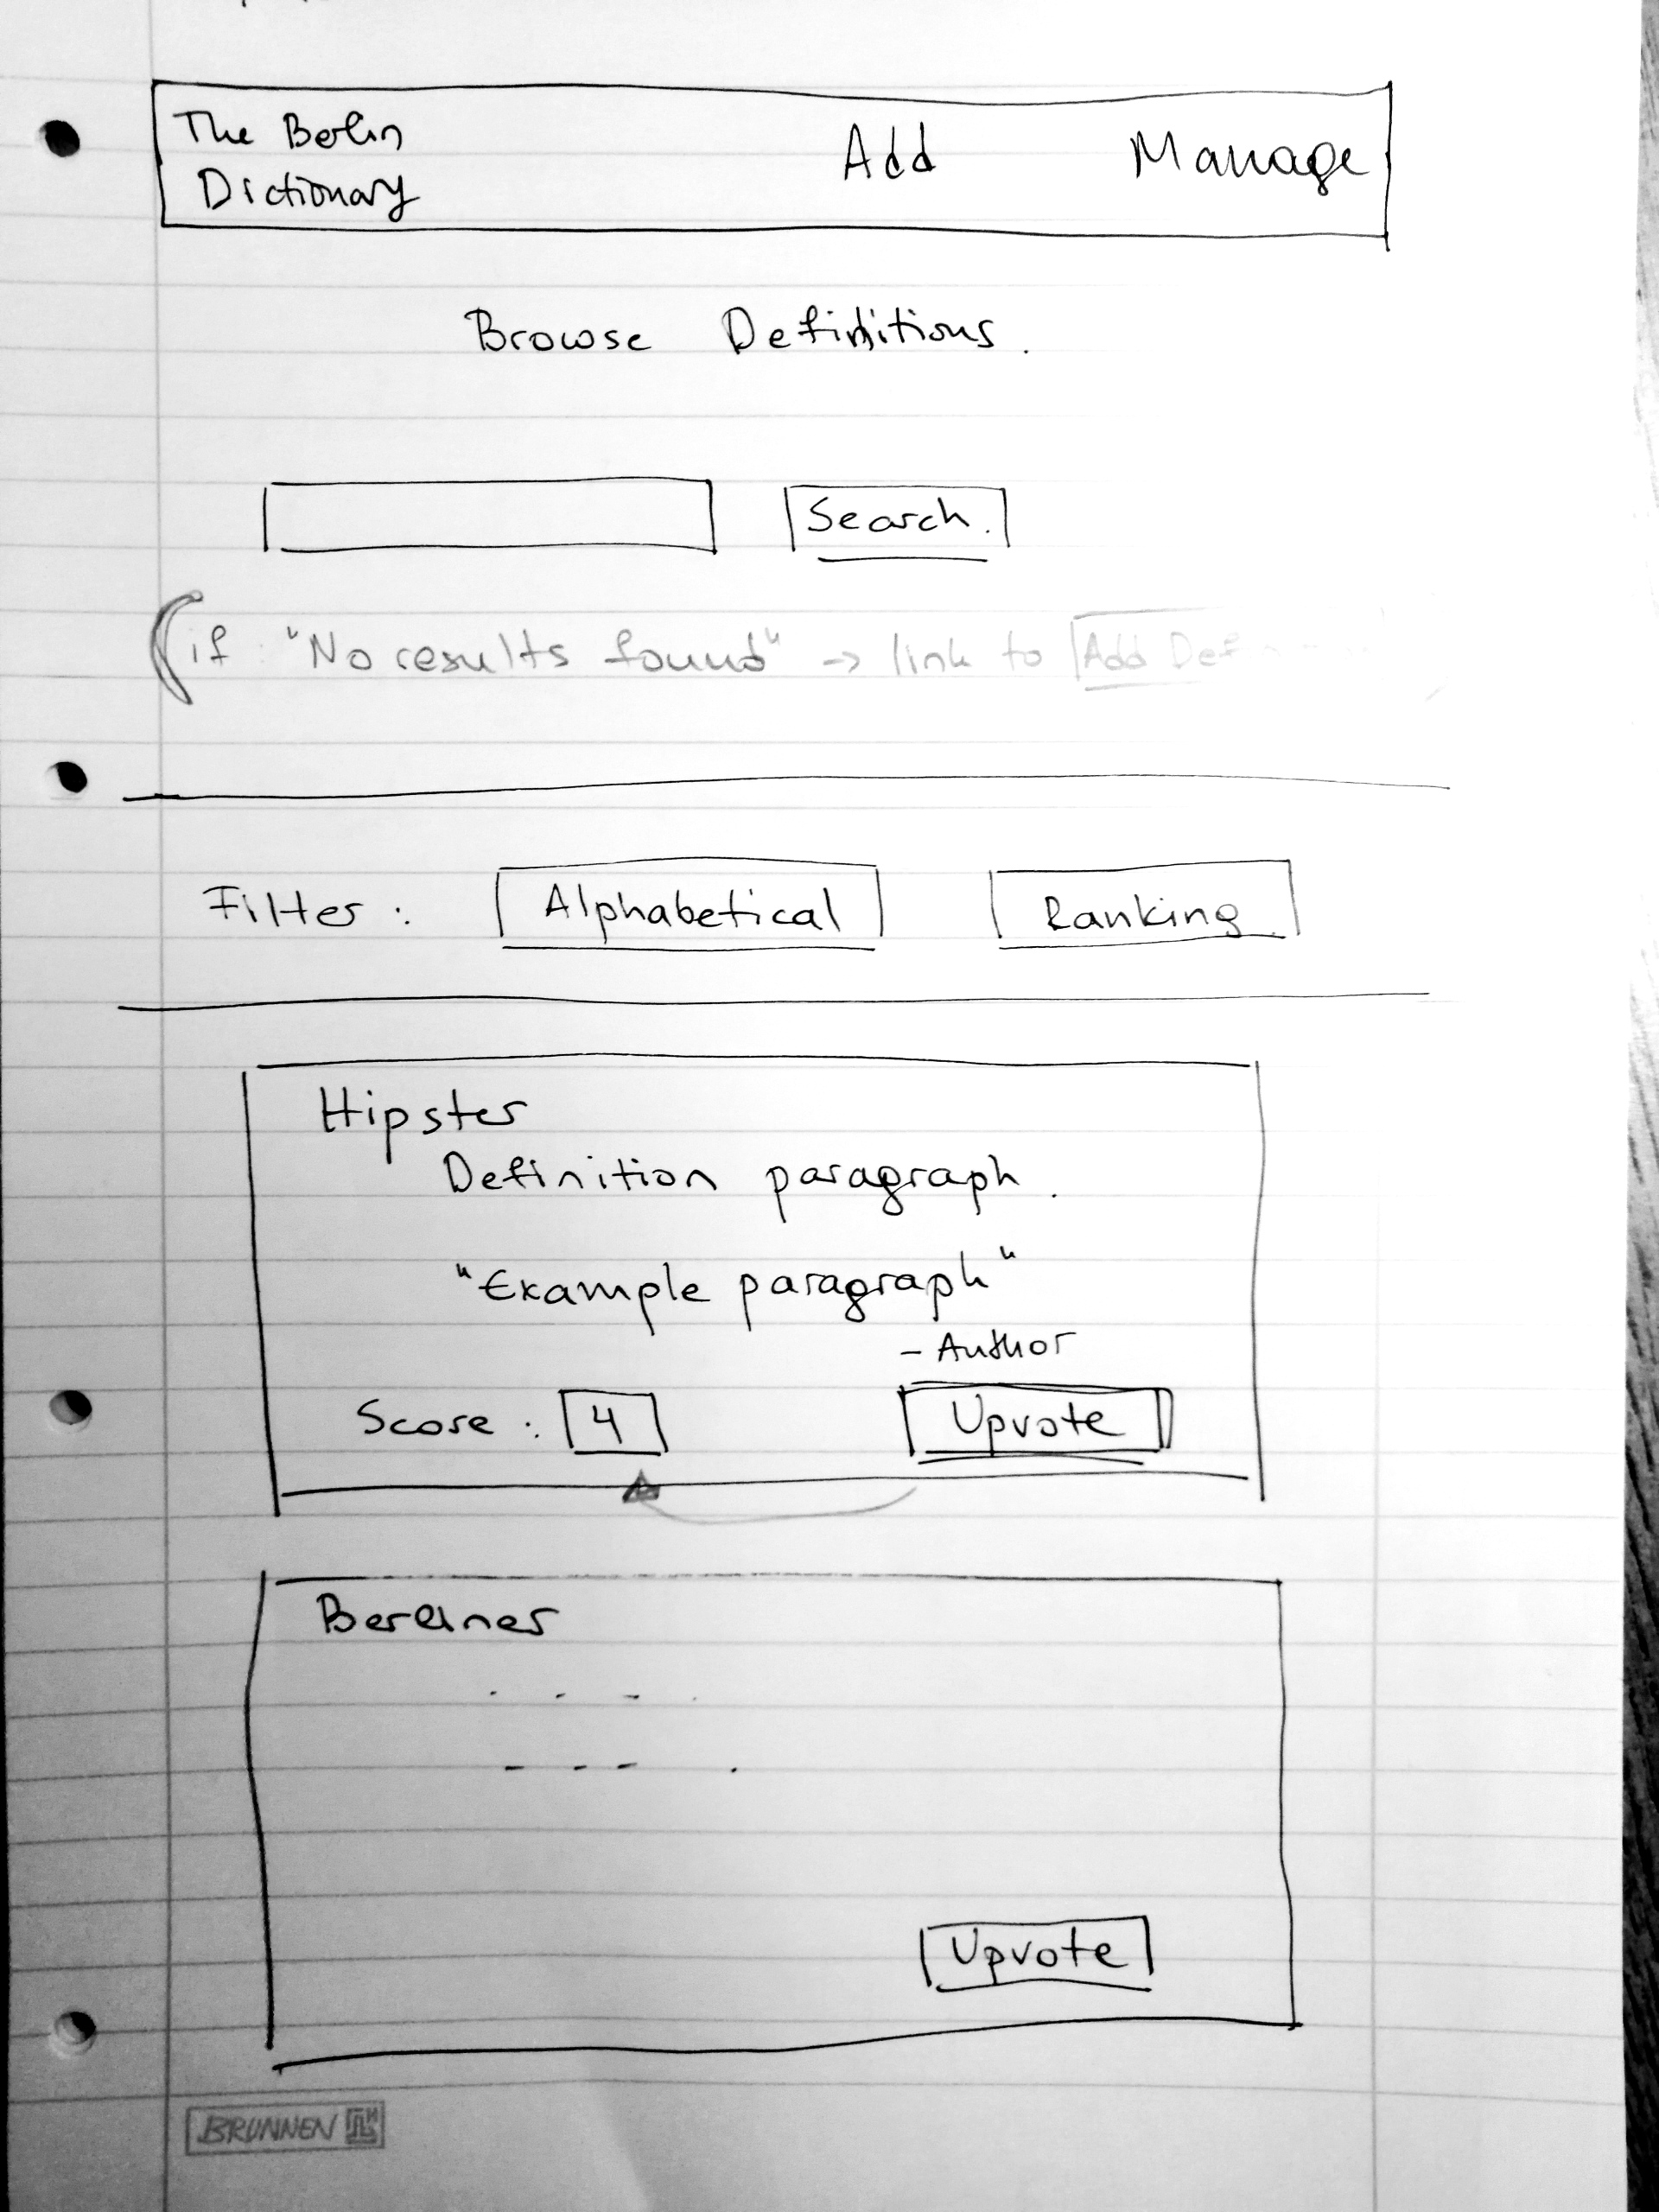 The Berlin
Dictionary
Add
Manage
Browse Definitions.
Search.
(if "No results found" -> link to Add Def
Filter: Alphabetical Ranking
Hipster
Definition paragraph.
"Example paragraph"
- Author
Score: 4 Upvote
Berliner
. - - .
- - - .
Upvote
BRUNNEN